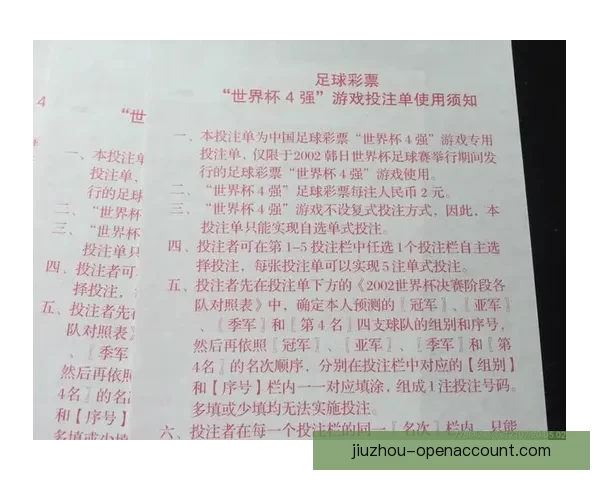 足球彩票
“世界杯 4 强”游戏投注单使用须知
一、本投注单为中国足球彩票“世界杯 4 强”游戏专用
投注单，仅限于2002 韩日世界杯足球赛举行期间发
行的足球彩票“世界杯 4 强”游戏使用。
二、“世界杯 4 强”足球彩票每注人民币 2 元。
三、“世界杯 4 强”游戏不设复式投注方式，因此，本
投注单只能实现自选单式投注。
四、投注者可在第 1-5 投注栏中任选 1 个投注栏自主选
择投注，每张投注单可以实现 5 注单式投注。
五、投注者先在投注单下方的《2002世界杯决赛阶段各
队对照表》中，确定本人预测的〖冠军〗、〖亚军〗
、〖季军〗和〖第 4 名〗四支球队的组别和序号，
然后再依照〖冠军〗、〖亚军〗、〖季军〗和〖第
4名〗的名次顺序，分别在投注栏中对应的【组别】
和【序号】栏内一一对应填涂，组成 1 注投注号码。
多填或少填均无法实施投注。
六、投注者在每一个投注栏的同一〖名次〗栏内，只能
4
“世
一、本投注单
投注单，
行的足球
二、“世界杯
三、“世界杯
投注单只
四、投注者可
择投注，
五、投注者先在
队对照表》
、〖季军
然后再依照
4名〗的名
和【序号】
多填或少填
jiuzhou-openaccount.com